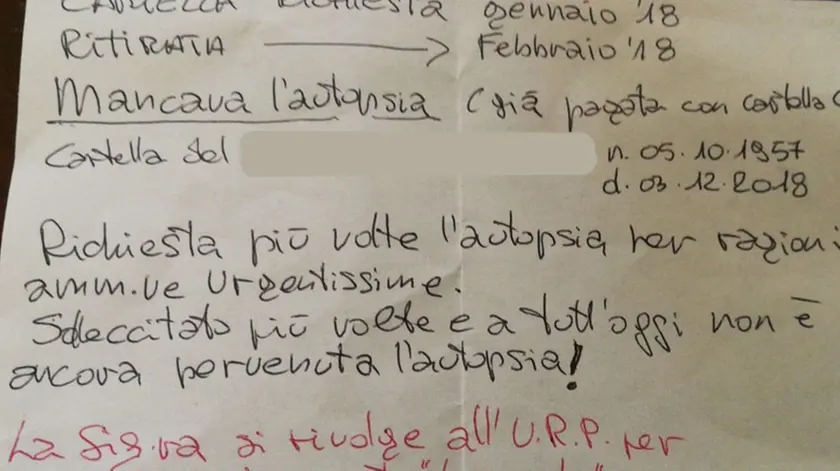 CARTELLA RICHIESTA gennaio '18
RITIRATA → Febbraio '18
Mancava l'autopsia (già pagata con cartella
Cartella del n. 05.10.1957
d. 03.12.2018
Richiesta più volte l'autopsia per ragioni
amm.ve urgentissime.
Sollecitato più volte e a tutt'oggi non è
ancora pervenuta l'autopsia!
La Sig.ra si rivolge all'U.R.P. per